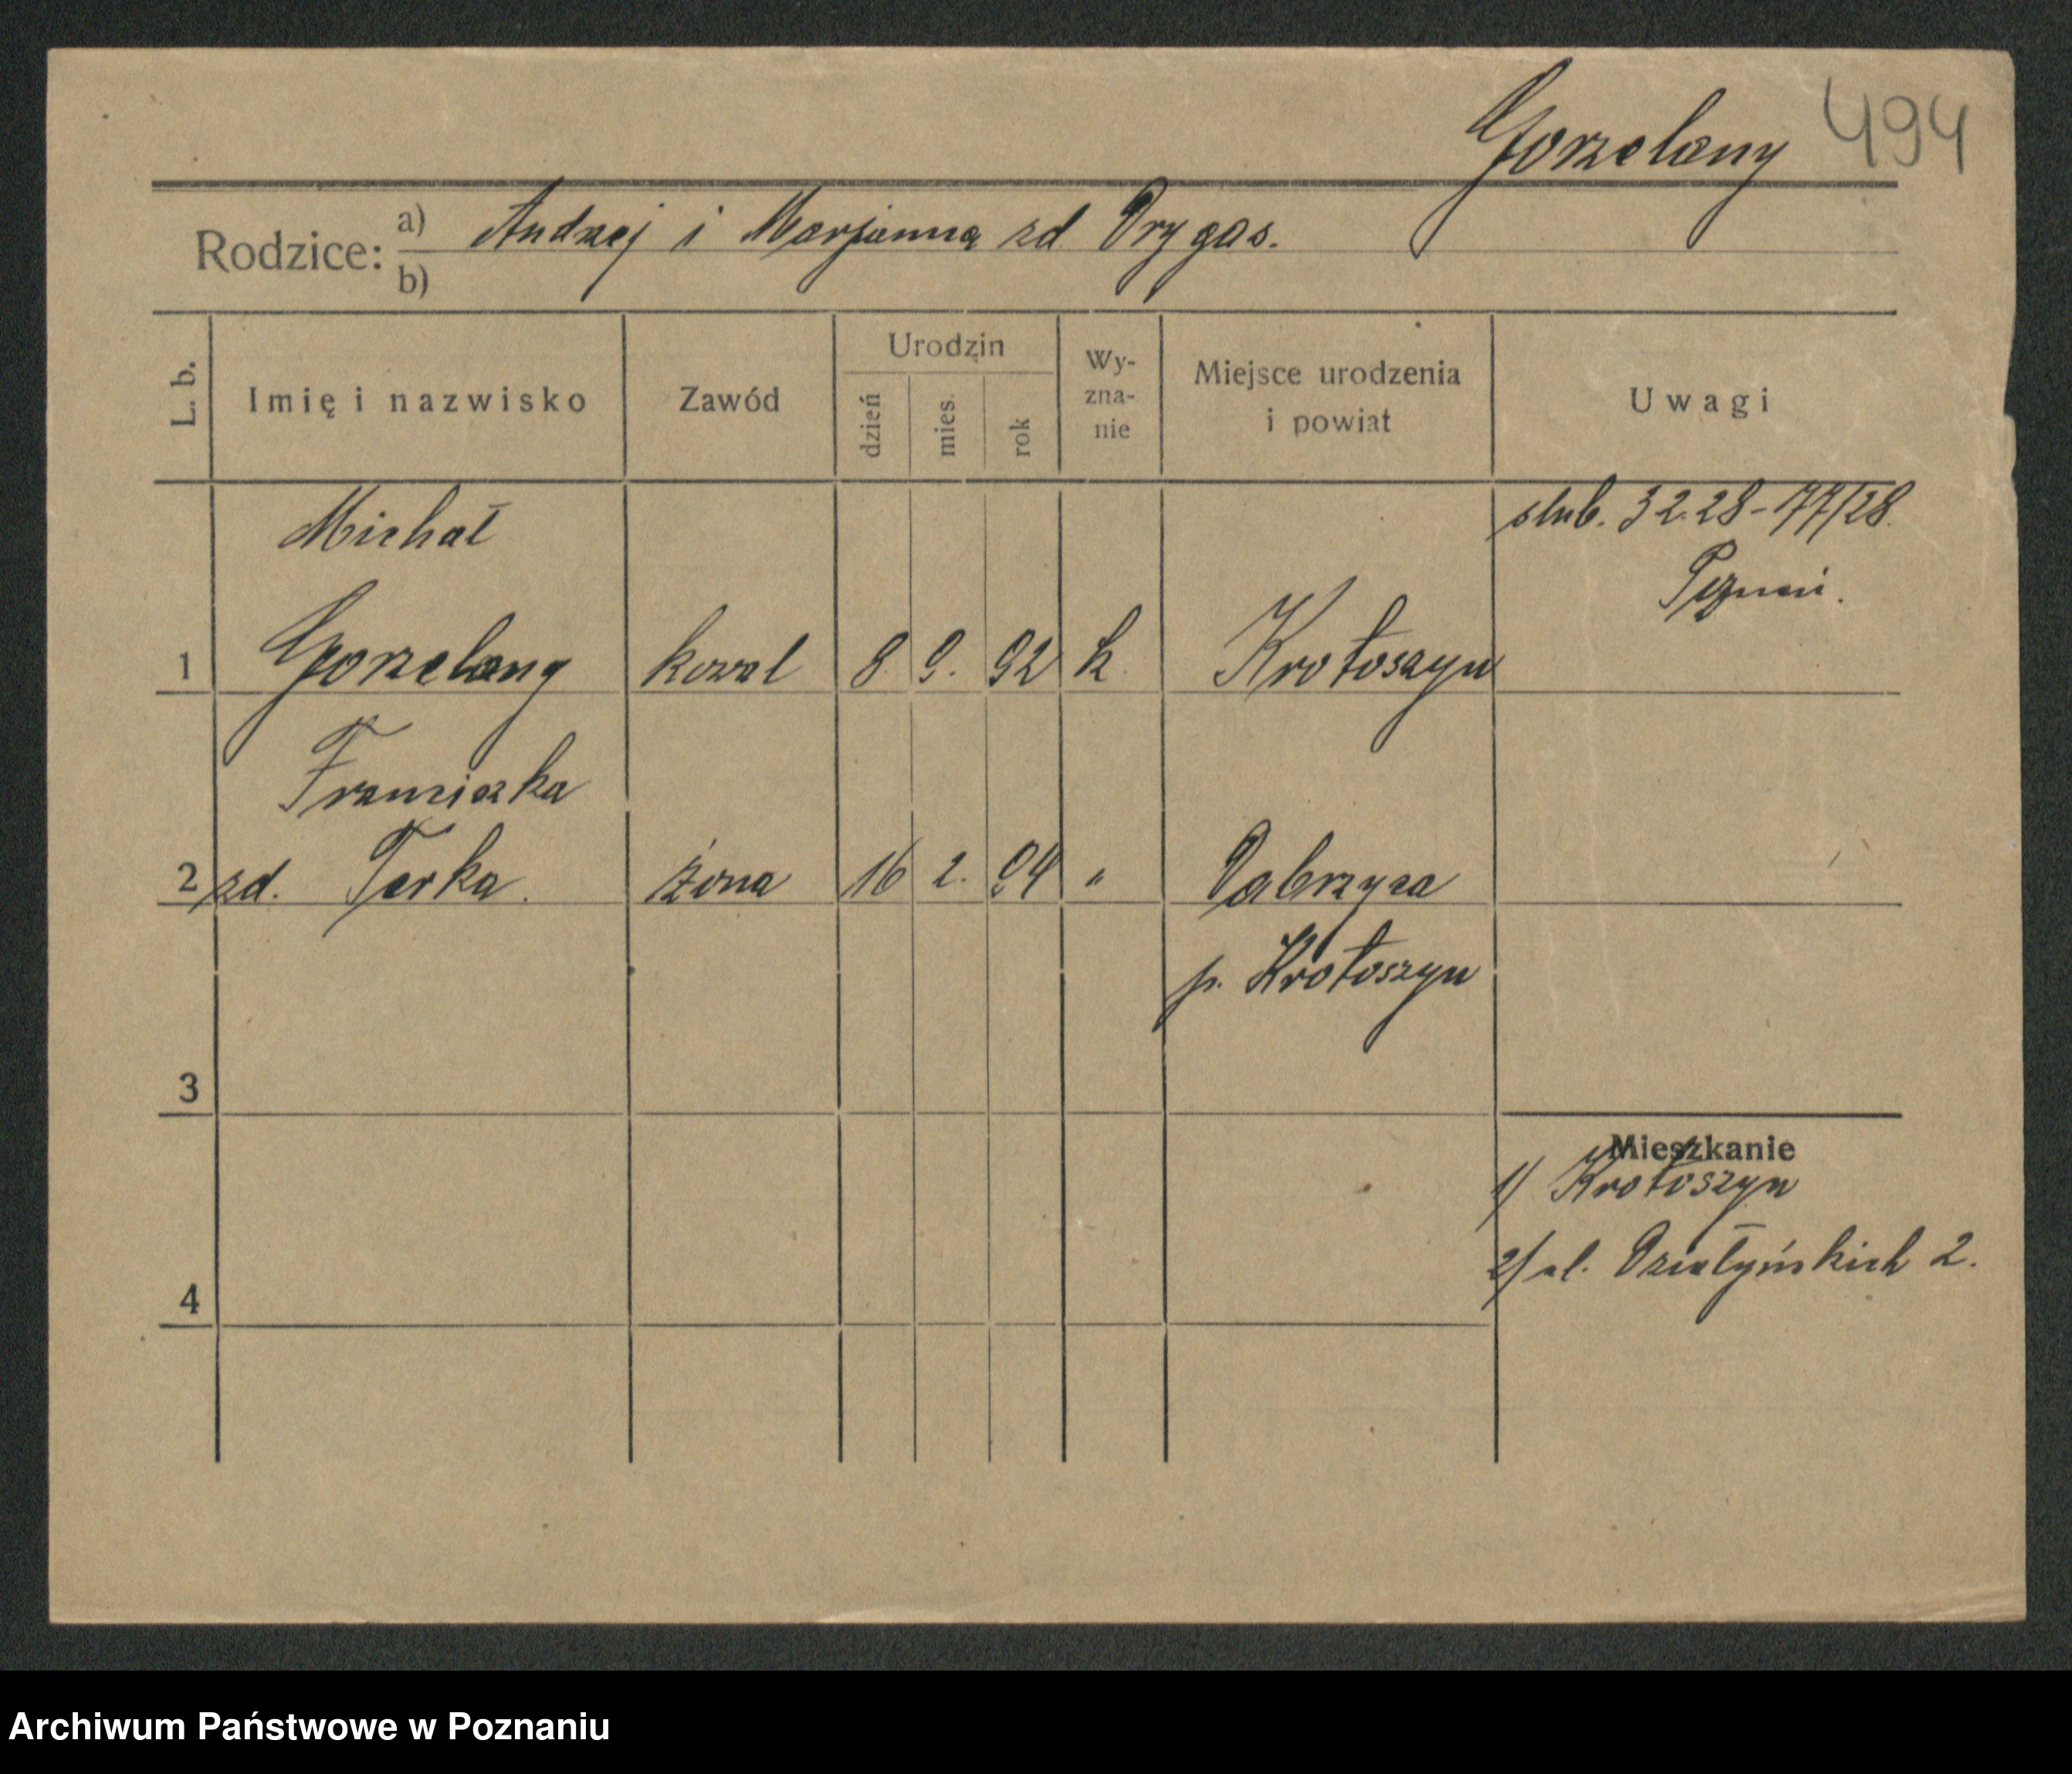 Gorzelany 494
Rodzice: a) Andrzej i Marjanna zd Drygas.
b)
L. b. Imię i nazwisko Zawód Urodzin dzień mies. rok Wy-zna-nie Miejsce urodzenia i powiat Uwagi
Michał ślub. 3 2.28-77/28.
Poznań.
1 Gorzelany kowal 8. 9. 92 k. Krotoszyn
Franciszka
2 zd. Terka. żona 16 2. 94 " Dobrzyca
p. Krotoszyn
3
Mieszkanie
1) Krotoszyn
2) ul. Działyńskich 2.
4
Archiwum Państwowe w Poznaniu